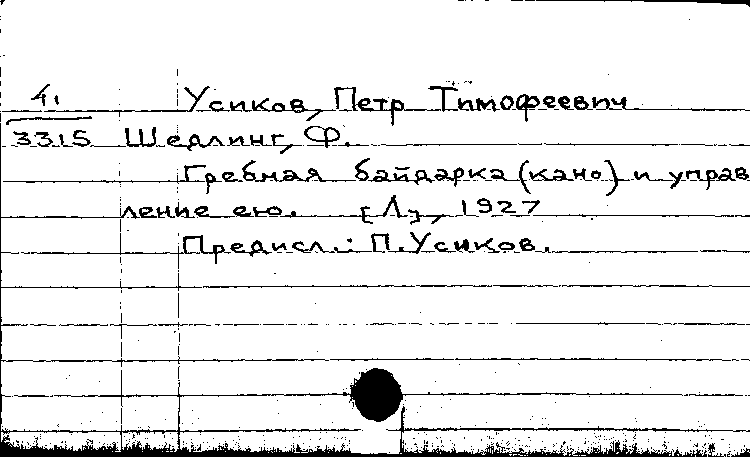 4. Усиков, Петр Тимофеевич
3315 Шедлинг, Ф.
Гребная байдарка (кано) и управ
ление ею. [Л], 1927
Предисл.: П. Усиков.